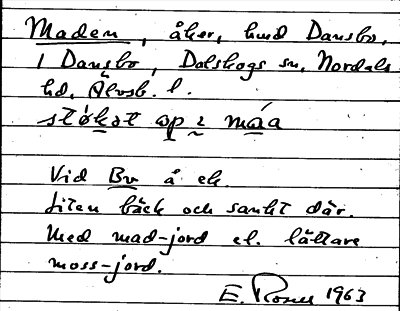 Maden, åker, hmd Dansbo,
1 Dansbo, Dalskogs sn, Nordals
hd, Älvsb. l.
støkət op i máa
Vid Bv å ek.
Liten bäck och sankt där.
Med mad-jord el. lättare
moss-jord.
E. Rosell 1963